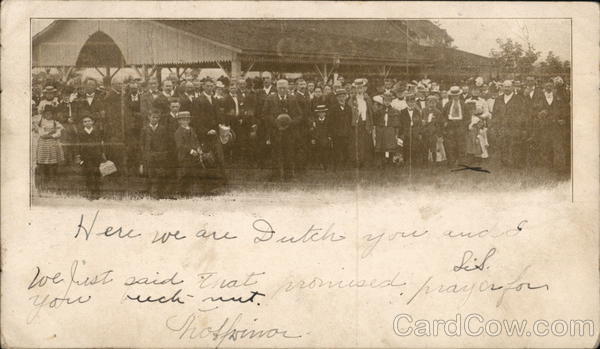 Here we are Dutch you and
Sis.
We just said that promised prayer for
you buck-nut.
CardCow.com